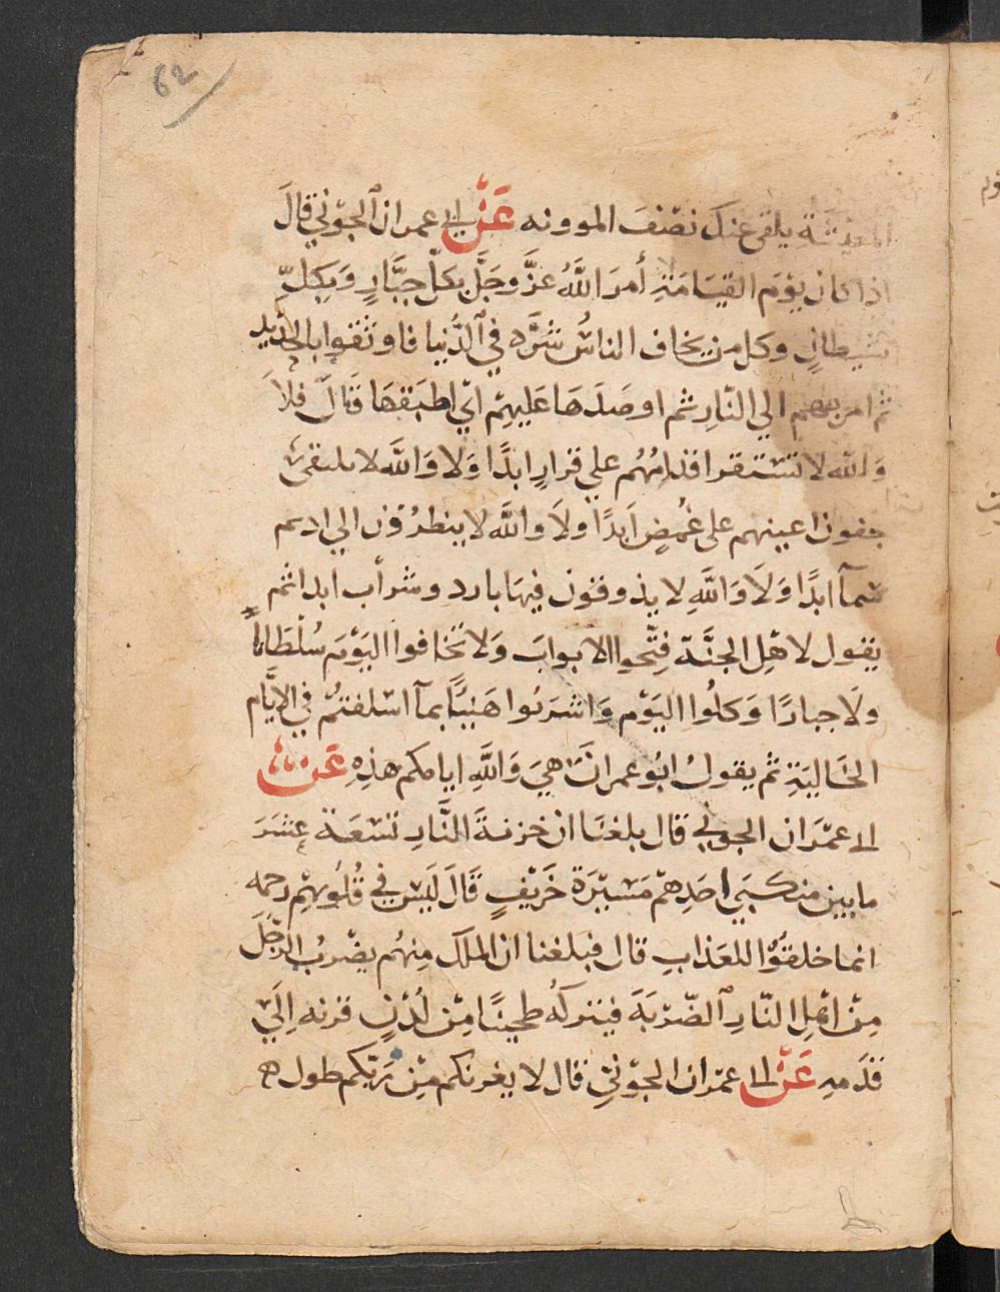 62
المعيشة يلقى عنك نصْفَ الموونه عَنْ ابي عمران الجَوْني قالَ
اذا كان يوْمَ القيَامَةِ أمرَ اللَّهُ عزَّ وجَلَّ بكلّ جبَّارٍ وَبكلّ
شيطانٍ وكل من يخاف الناسُ شرَّه في الدُّنيا فاوثقوا بالحديد
ثم امر بهم الي النّارِ ثم اوصَدَهَا عَليهِمْ اي اطبَقهَا قَالَ فلاَ
وَالله لا تسْتقر اقدامُهُم علي قرارٍ ابدًا وَلا وَاللَّه لا يلتقى
جفون اعينهم على غُمضٍ اَبدًا ولاَ واللَّه لا ينظرُون الي اديم
سمآ ابدًا وَلاَ وَاللَّهِ لا يذوقون فيهَا بارد وشراب ابدا ثم
يقول لاهْلِ الجنَّة فتّحوا الابوابَ وَلا تخافوا اليَوْمَ سُلْطَاناً
ولَا جبارًا وَكلُوا اليَوْم وَاشرَبُوا هَنيًّا بمآ اسْلفتمْ في الايَّام
الخَاليَةِ ثم يقولُ ابُو عمرانَ هيَ وَاللَّهِ ايامكم هذِهِ عَن
ابي عمْرَان الجوني قال بلغنَا ان خزنةَ النَّارِ تسْعَة عشَرَ
ما بين منكبَي احَدِهمْ مَسيْرَة خَريْفٍ قَالَ لَيسَ في قُلُوبهِمْ رحمه
انما خلقوا للعَذابِ قال فبلغنا ان الملك مِنهُم يضْربُ الرّجُلَ
مِنْ اهْلِ النّارِ الضّرْبَةَ فيتركهُ طحينًا مِنْ لدُنٍ قرنه اِلَيْ
قدَمهِ عَنْ ابي عمْران الجَوْنيّ قال لا يغرنكم مِنْ رَبّكم طول